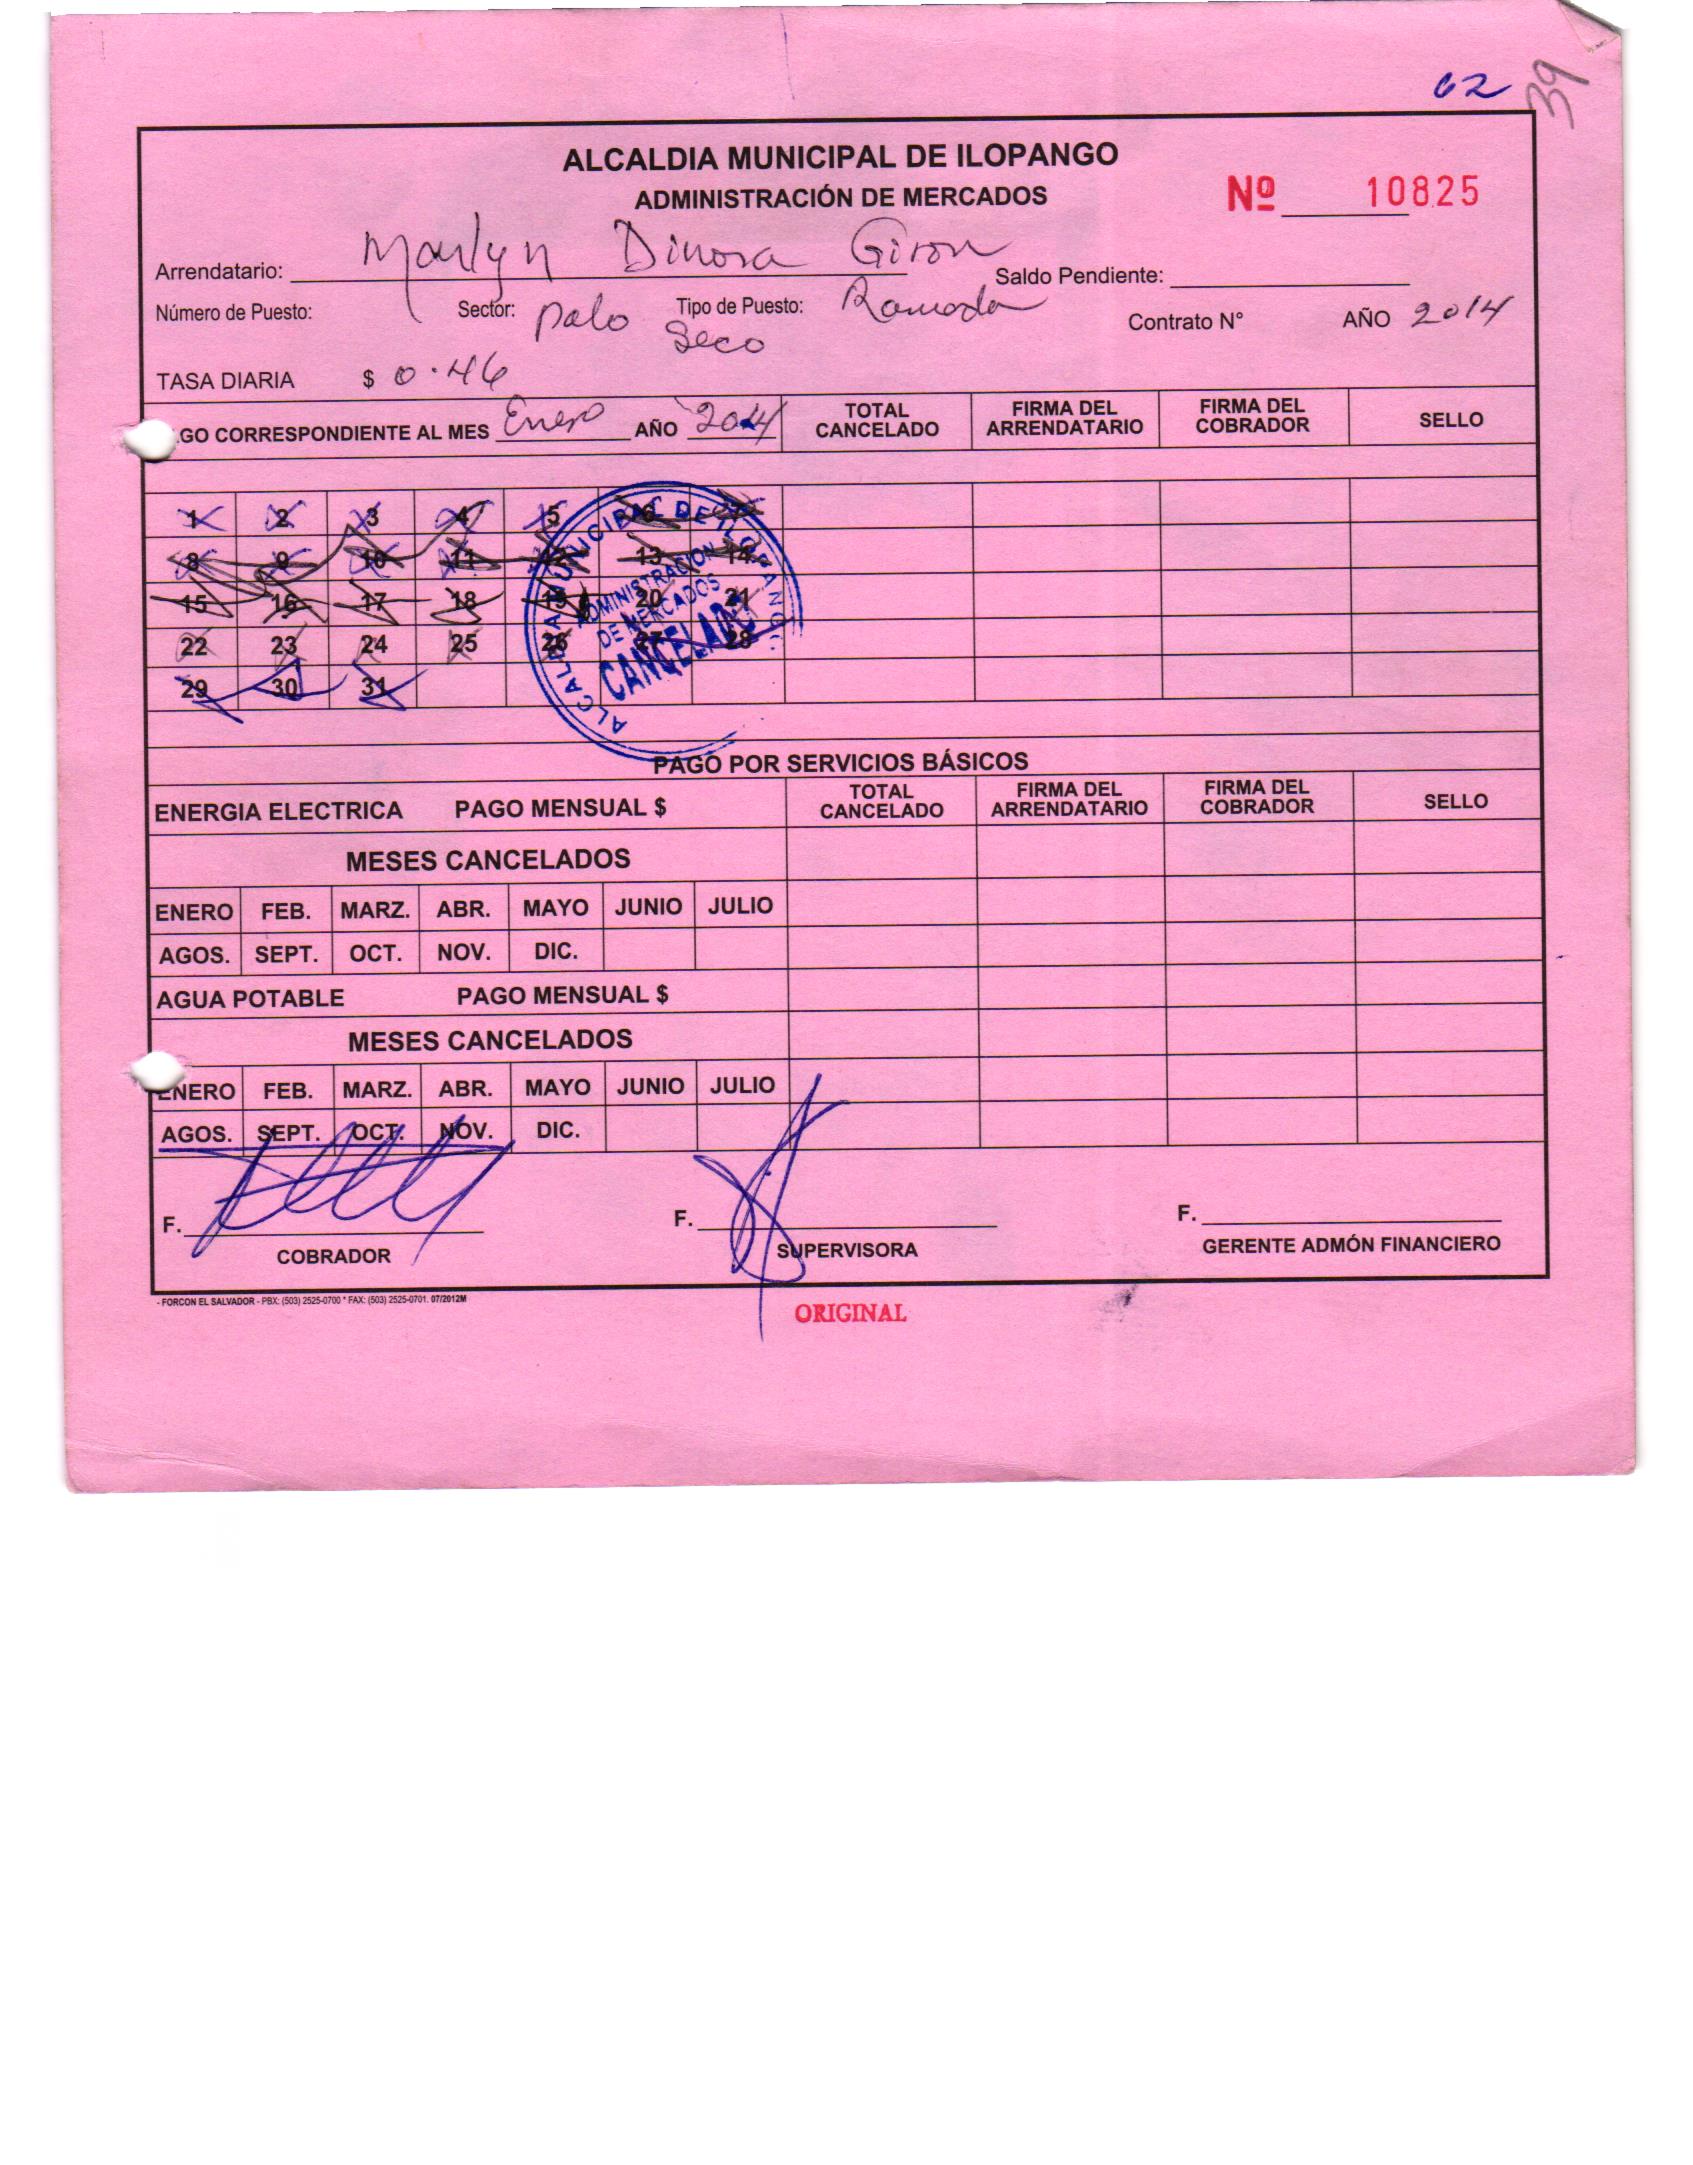 62
39
ALCALDIA MUNICIPAL DE ILOPANGO
ADMINISTRACIÓN DE MERCADOS
Nº 10825
Arrendatario: Marlyn Dinora Giron Saldo Pendiente:
Número de Puesto: Sector: Palo Seco Tipo de Puesto: Ramada Contrato N° AÑO 2014
TASA DIARIA $ 0.46
GO CORRESPONDIENTE AL MES Enero AÑO 2014 TOTAL CANCELADO FIRMA DEL ARRENDATARIO FIRMA DEL COBRADOR SELLO
1 2 3 4 5 6 7
8 9 10 11 12 13 14
15 16 17 18 19 20 21
22 23 24 25 26 27 28
29 30 31
ALCALDIA MUNICIPAL DE ILOPANGO
ADMINISTRACION
DE MERCADOS
CANCELADO
PAGO POR SERVICIOS BÁSICOS
ENERGIA ELECTRICA PAGO MENSUAL $ TOTAL CANCELADO FIRMA DEL ARRENDATARIO FIRMA DEL COBRADOR SELLO
MESES CANCELADOS
ENERO FEB. MARZ. ABR. MAYO JUNIO JULIO
AGOS. SEPT. OCT. NOV. DIC.
AGUA POTABLE PAGO MENSUAL $
MESES CANCELADOS
ENERO FEB. MARZ. ABR. MAYO JUNIO JULIO
AGOS. SEPT. OCT. NOV. DIC.
F. F. F.
COBRADOR SUPERVISORA GERENTE ADMÓN FINANCIERO
- FORCON EL SALVADOR - PBX: (503) 2525-0700 * FAX: (503) 2525-0701. 07/2012M
ORIGINAL